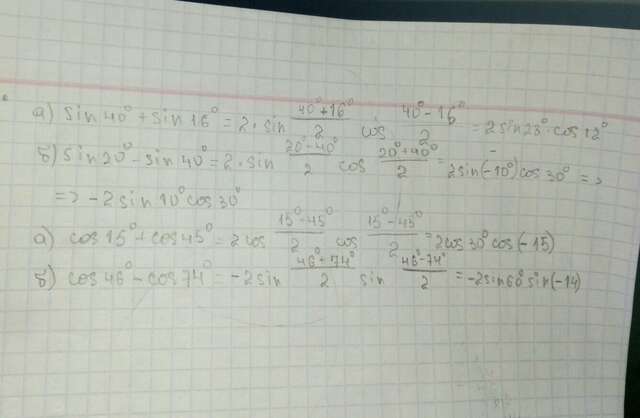 а) sin 40° + sin 16° = 2 · sin (40°+16°)/2 cos (40°-16°)/2 = 2 sin 28° · cos 12°
б) sin 20° - sin 40° = 2 · sin (20°-40°)/2 cos (20°+40°)/2 = 2 sin (-10°) cos 30° =>
=> -2 sin 10° cos 30°
а) cos 15° + cos 45° = 2 cos (15°-45°)/2 cos (15°-45°)/2 = 2 cos 30° cos (-15)
б) cos 46° - cos 74° = -2 sin (46°+74°)/2 sin (46°-74°)/2 = -2 sin 60° sin (-14)